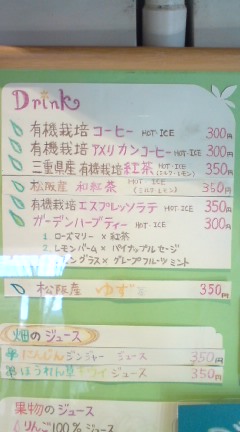 Drink
有機栽培コーヒー HOT・ICE 300円
有機栽培アメリカンコーヒー HOT・ICE 300円
三重県産有機栽培紅茶 HOT・ICE (ミルク・レモン) 350円
松阪産 和紅茶 HOT・ICE (ミルク・レモン) 350円
有機栽培エスプレッソラテ HOT・ICE 350円
ガーデンハーブティー HOT・ICE 300円
1. ローズマリー × 紅茶
2. レモンバーム × パイナップルセージ
ングラス × グレープフルーツミント
松阪産 ゆず 350円
畑のジュース
にんじんジンジャー ジュース 350円
ほうれん草キウイ ジュース 350円
果物のジュース
りんご100%ジュース